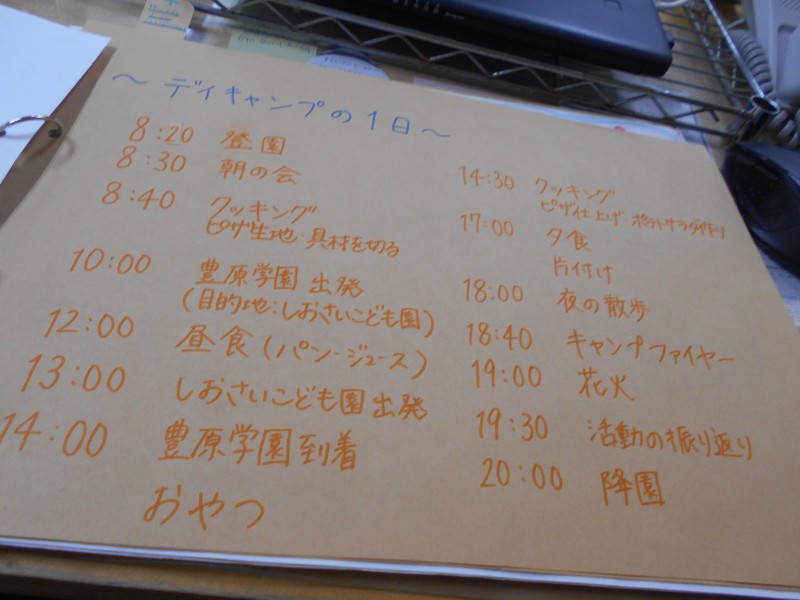 ～デイキャンプの1日～
8:20 登園
8:30 朝の会
8:40 クッキング
ピザ生地・具材を切る
10:00 豊原学園 出発
(目的地:しおさいこども園)
12:00 昼食(パン・ジュース)
13:00 しおさいこども園出発
14:00 豊原学園到着
おやつ
14:30 クッキング
ピザ仕上げ・ポテトサラダ作り
17:00 夕食
片付け
18:00 夜の散歩
18:40 キャンプファイヤー
19:00 花火
19:30 活動の振り返り
20:00 降園